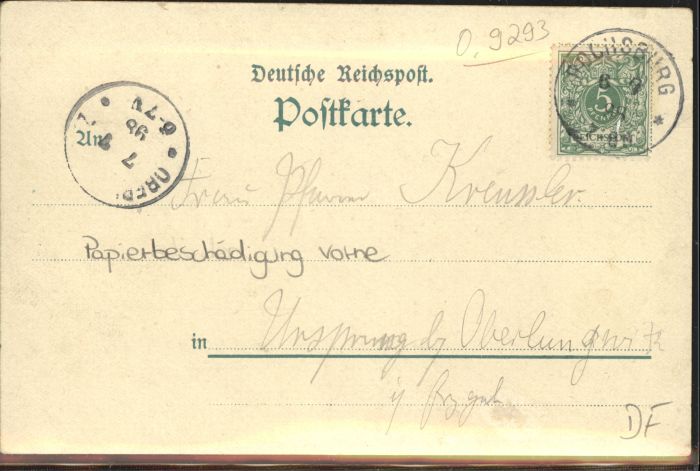 O. 9293
Deutsche Reichspost.
Postkarte.
ROCHSBURG
5
An
98
7
6-7V
OBER
Frau Pfarrer Kreussler.
Papierbeschädigung vorne
in Ursprung b/ Oberlungwitz
i/ Erzgeb
DF